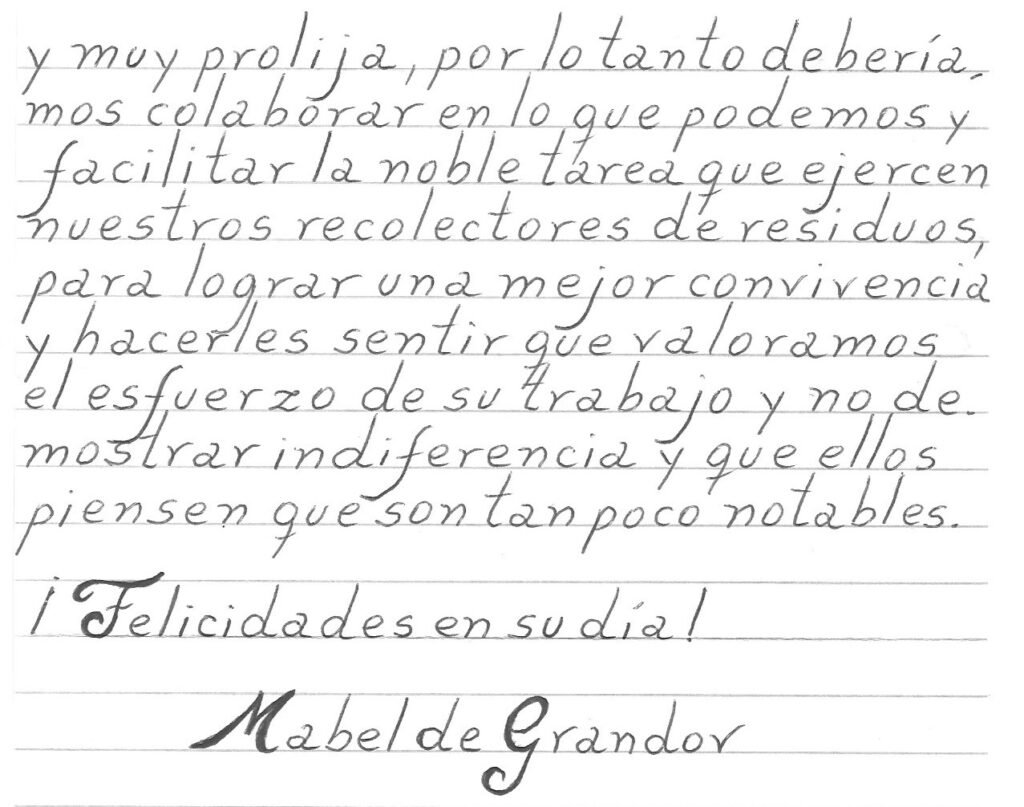 y muy prolija, por lo tanto debería-
mos colaborar en lo que podemos y
facilitar la noble tarea que ejercen
nuestros recolectores de residuos,
para lograr una mejor convivencia
y hacerles sentir que valoramos
el esfuerzo de su trabajo y no de-
mostrar indiferencia y que ellos
piensen que son tan poco notables.
¡Felicidades en su día!
Mabel de Grandov